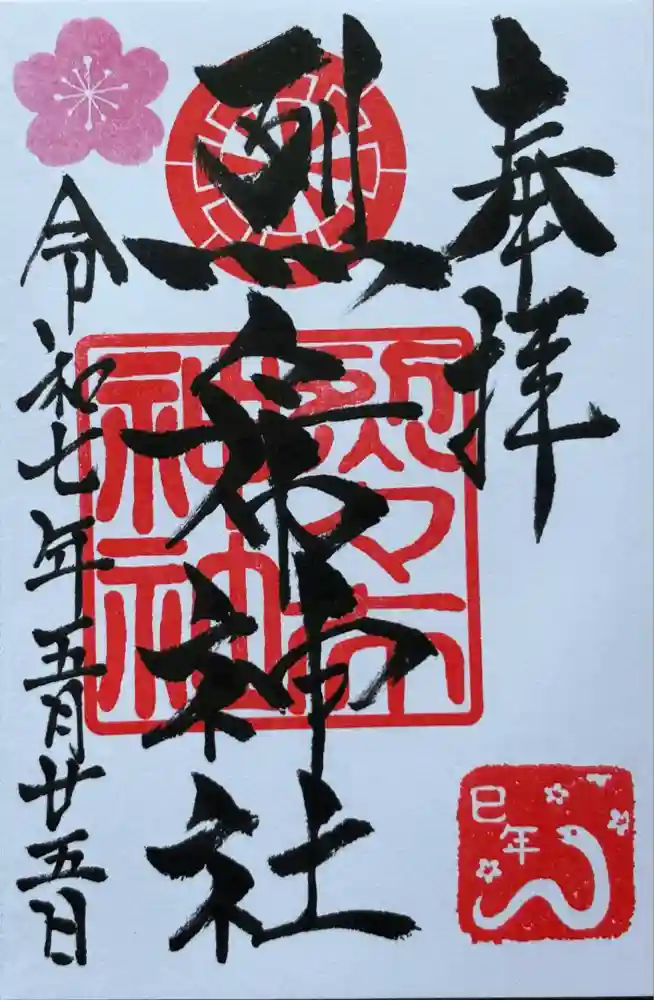 奉拝
烈々布神社
令和七年五月廿五日
烈々布
神社
巳年